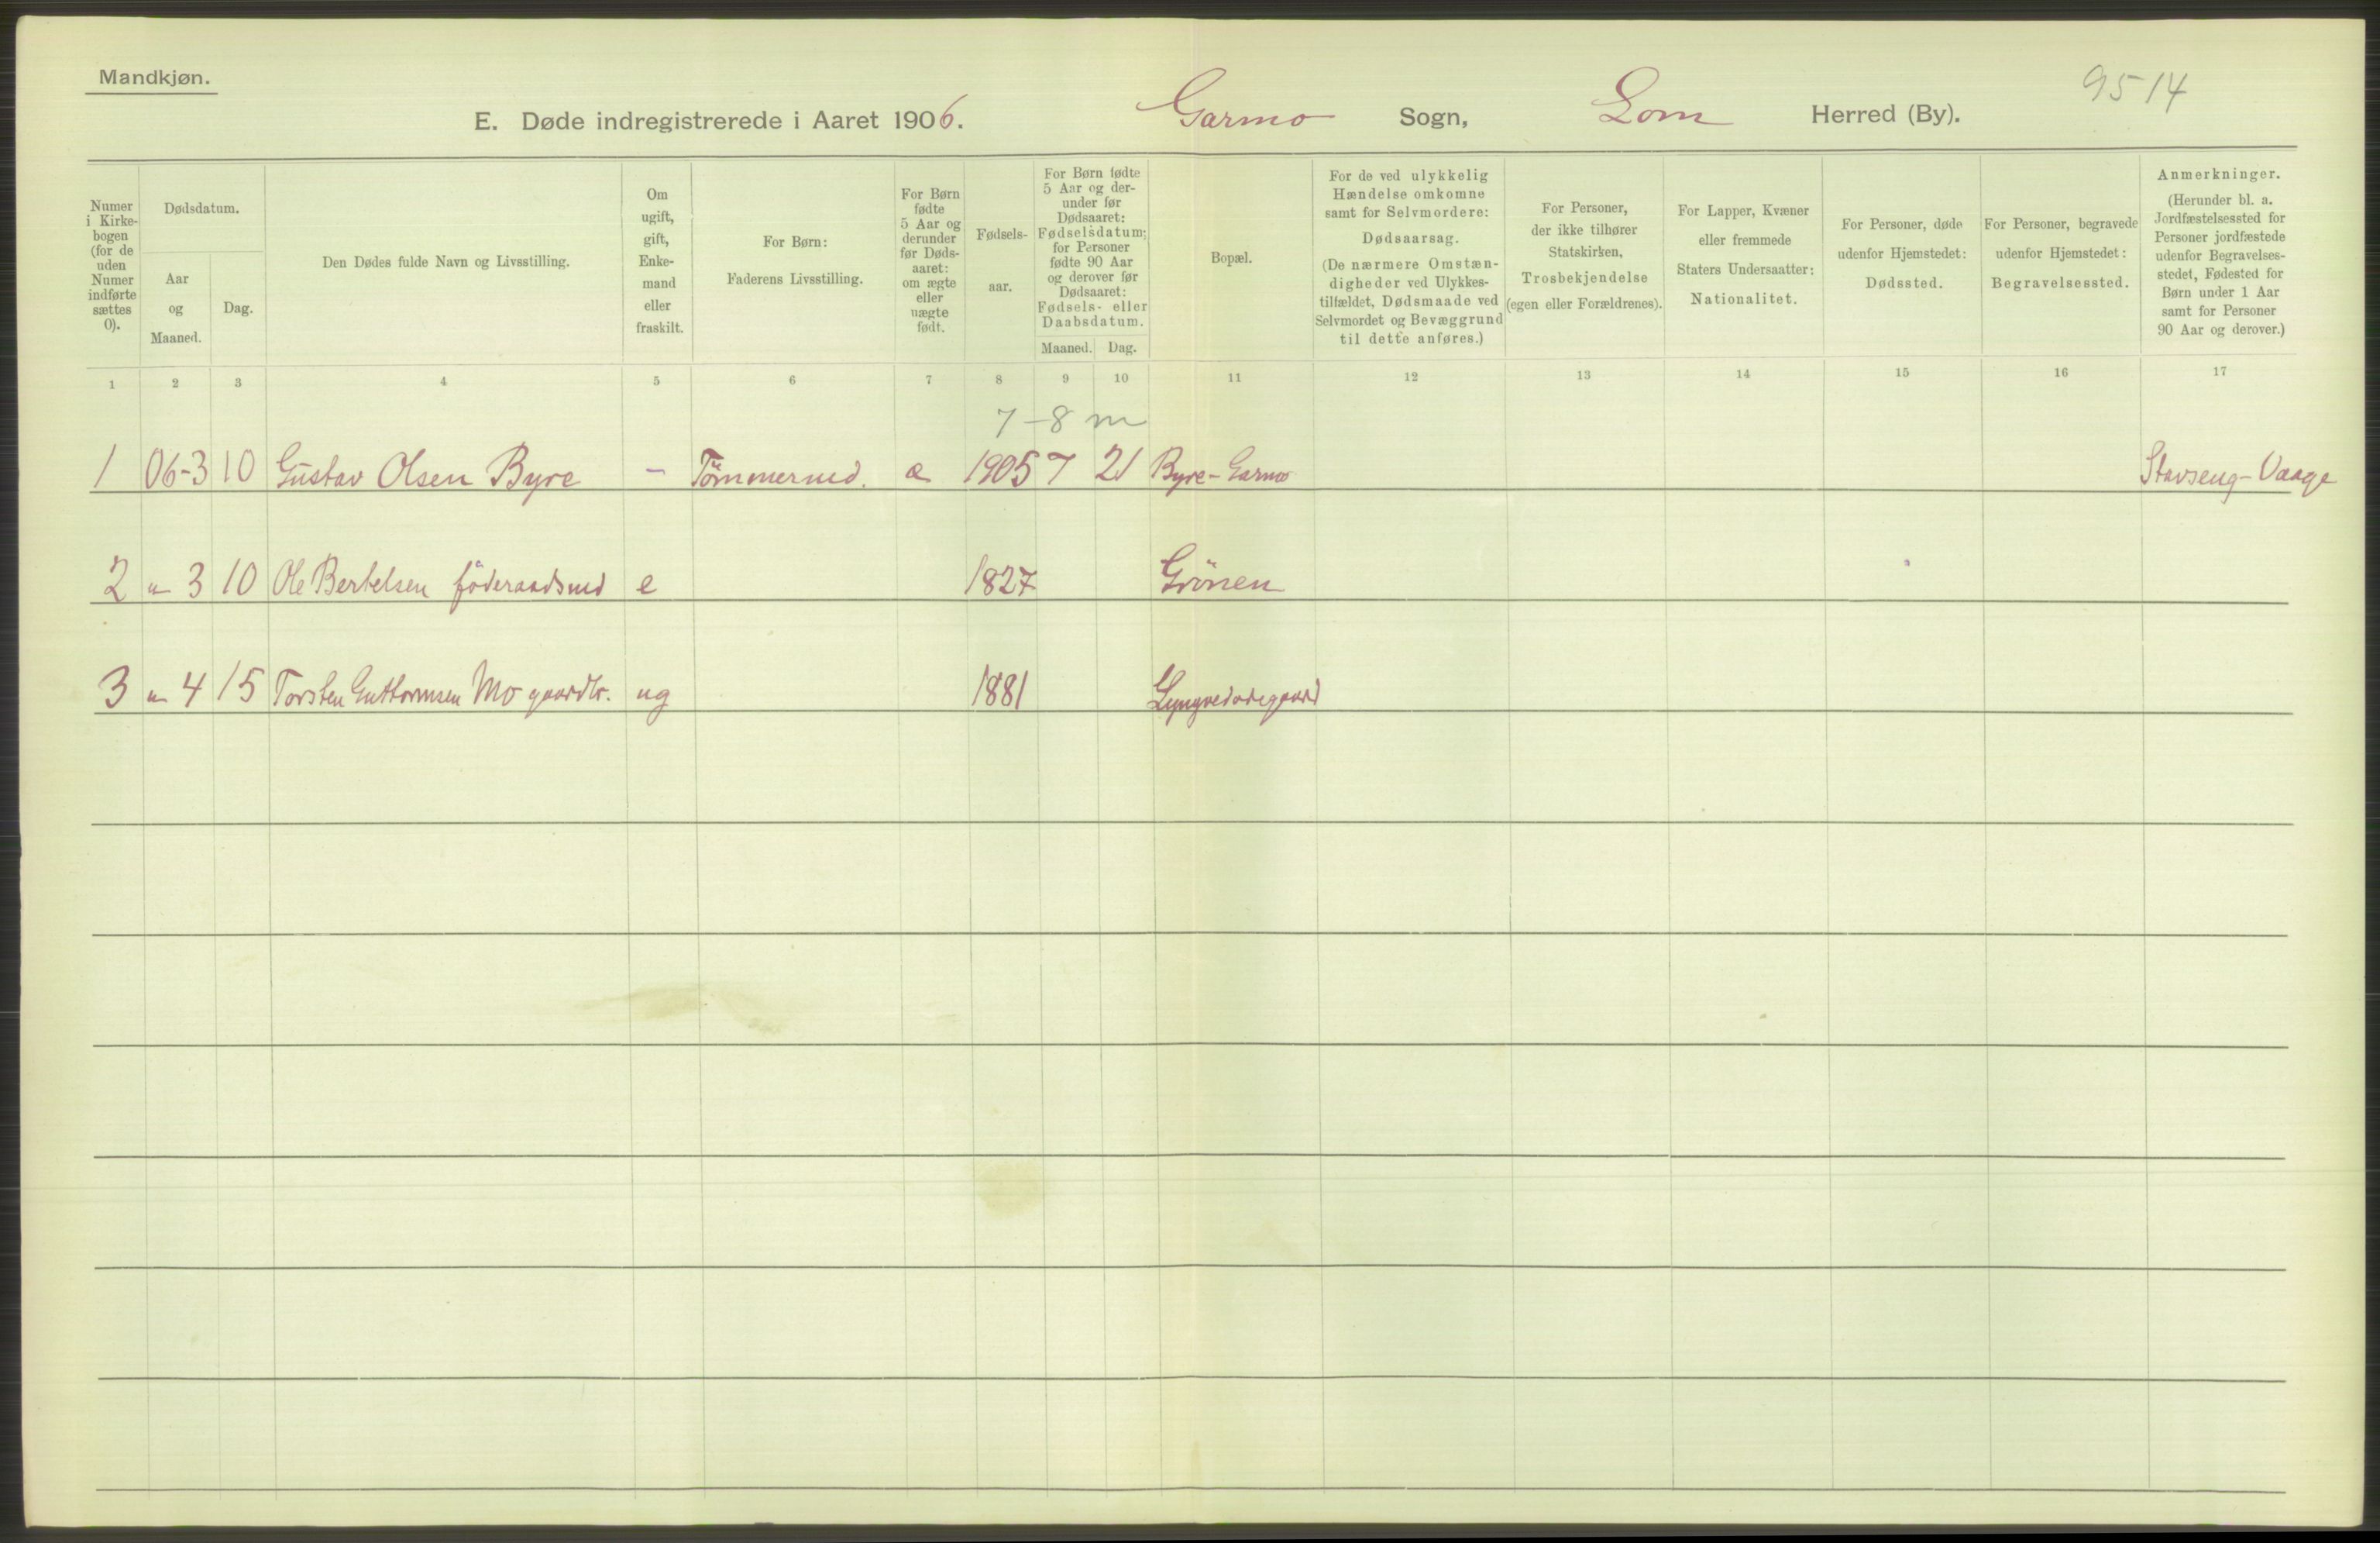 Mandkjøn.
E. Døde indregistrerede i Aaret 1906. Garmo Sogn, Lom Herred (By). 9514
Numer i Kirke-bogen (for de uden Numer indførte sættes 0).
Dødsdatum.
Aar og Maaned.
Dag.
Den Dødes fulde Navn og Livsstilling.
Om ugift, gift, Enke-mand eller fraskilt.
For Børn: Faderens Livsstilling.
For Børn fødte 5 Aar og derunder før Døds-aaret: om ægte eller uægte født.
Fødsels-aar.
For Børn fødte 5 Aar og der-under før Dødsaaret: Fødselsdatum; for Personer fødte 90 Aar og derover før Dødsaaret: Fødsels- eller Daabsdatum.
Maaned. Dag.
Bopæl.
For de ved ulykkelig Hændelse omkomne samt for Selvmordere: Dødsaarsag. (De nærmere Omstæn-digheder ved Ulykkes-tilfældet, Dødsmaade ved Selvmordet og Bevæggrund til dette anføres.)
For Personer, der ikke tilhører Statskirken, Trosbekjendelse (egen eller Forældrenes).
For Lapper, Kvæner eller fremmede Staters Undersaatter: Nationalitet.
For Personer, døde udenfor Hjemstedet: Dødssted.
For Personer, begravede udenfor Hjemstedet: Begravelsessted.
Anmerkninger. (Herunder bl. a. Jordfæstelsessted for Personer jordfæstede udenfor Begravelses-stedet, Fødested for Børn under 1 Aar samt for Personer 90 Aar og derover.)
1 2 3 4 5 6 7 8 9 10 11 12 13 14 15 16 17
7-8 m
1 06-3 10 Gustav Olsen Byre - Tømmermd. e 1905 7 21 Byre-Garmo Stavseng-Vaage
2 " 3 10 Ole Bertelsen föderaadsmd e 1827 Grönen
3 " 4 15 Torsten Guttormsen Mo gaardbr. ug 1881